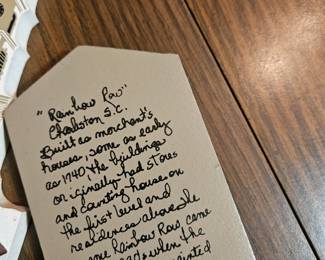 "Rainbow Row"
Charleston S.C.
Built as merchant's
houses, some as early
as 1740, the buildings
originally had stores
and counting house on
the first level and
residences above. The
name Rainbow Row came
when the
painted